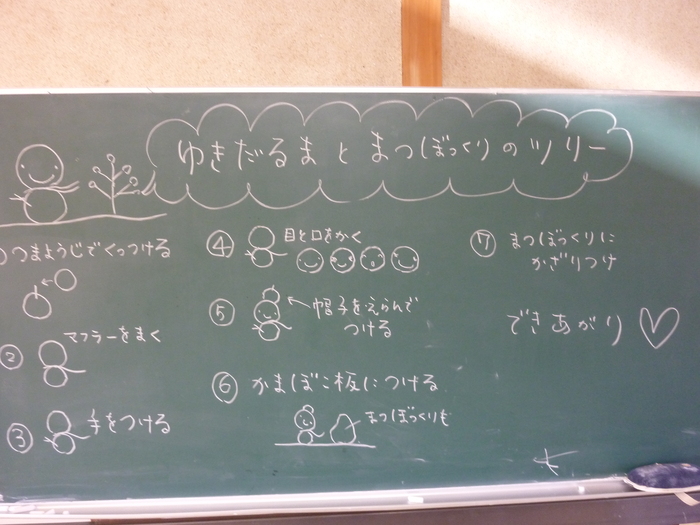 ゆきだるまとまつぼっくりのツリー
つまようじでくっつける
② マフラーをまく
③ 手をつける
④ 目と口をかく
⑤ 帽子をえらんで
つける
⑥ かまぼこ板につける
まつぼっくりも
⑦ まつぼっくりに
かざりつけ
できあがり